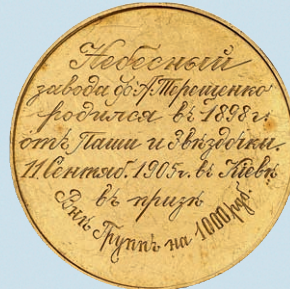 Небесный
завода Ѳ. А. Терещенко
родился въ 1898 г.
отъ Паши и Звѣздочки.
11 Сентяб. 1905 г. въ Кіевѣ
въ призѣ
Внѣ Группъ на 1000 руб.